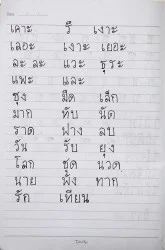 เคาะ รี เงาะ
เลอะ เงาะ เยอะ
ละ ละ แวะ ธุระ
แพะ และ
ชุง มืด เล็ก
มาก ทับ นัด
ราด ฟาง ลบ
วัน รับ ยุง
โลก ชุด นวด
นาย พัง ทาก
รัก เทียน